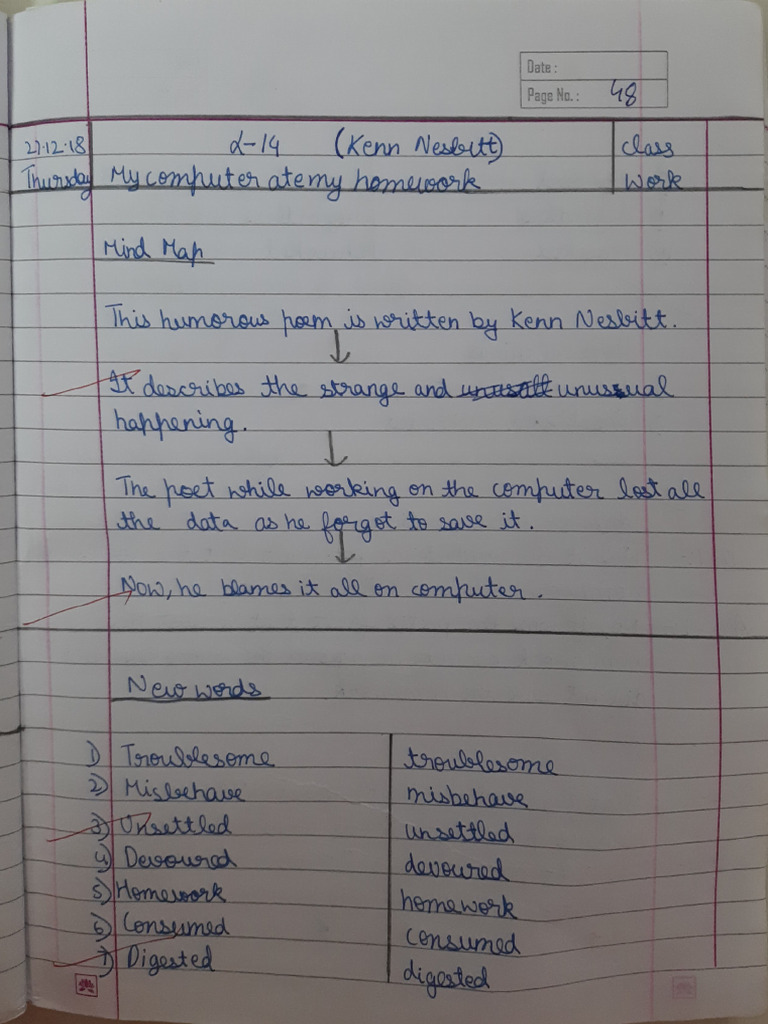 Date :
Page No. : 48
27.12.18 L-14 (Kenn Nesbitt) Class
Thursday My computer ate my homework Work
Mind Map
This humorous poem is written by Kenn Nesbitt.
↓
It describes the strange and unusual
happening.
↓
The poet while working on the computer lost all
the data as he forgot to save it.
↓
Now, he blames it all on computer.
New words
1) Troublesome troublesome
2) Misbehave misbehave
3) Unsettled unsettled
4) Devoured devoured
5) Homework homework
6) Consumed consumed
7) Digested digested